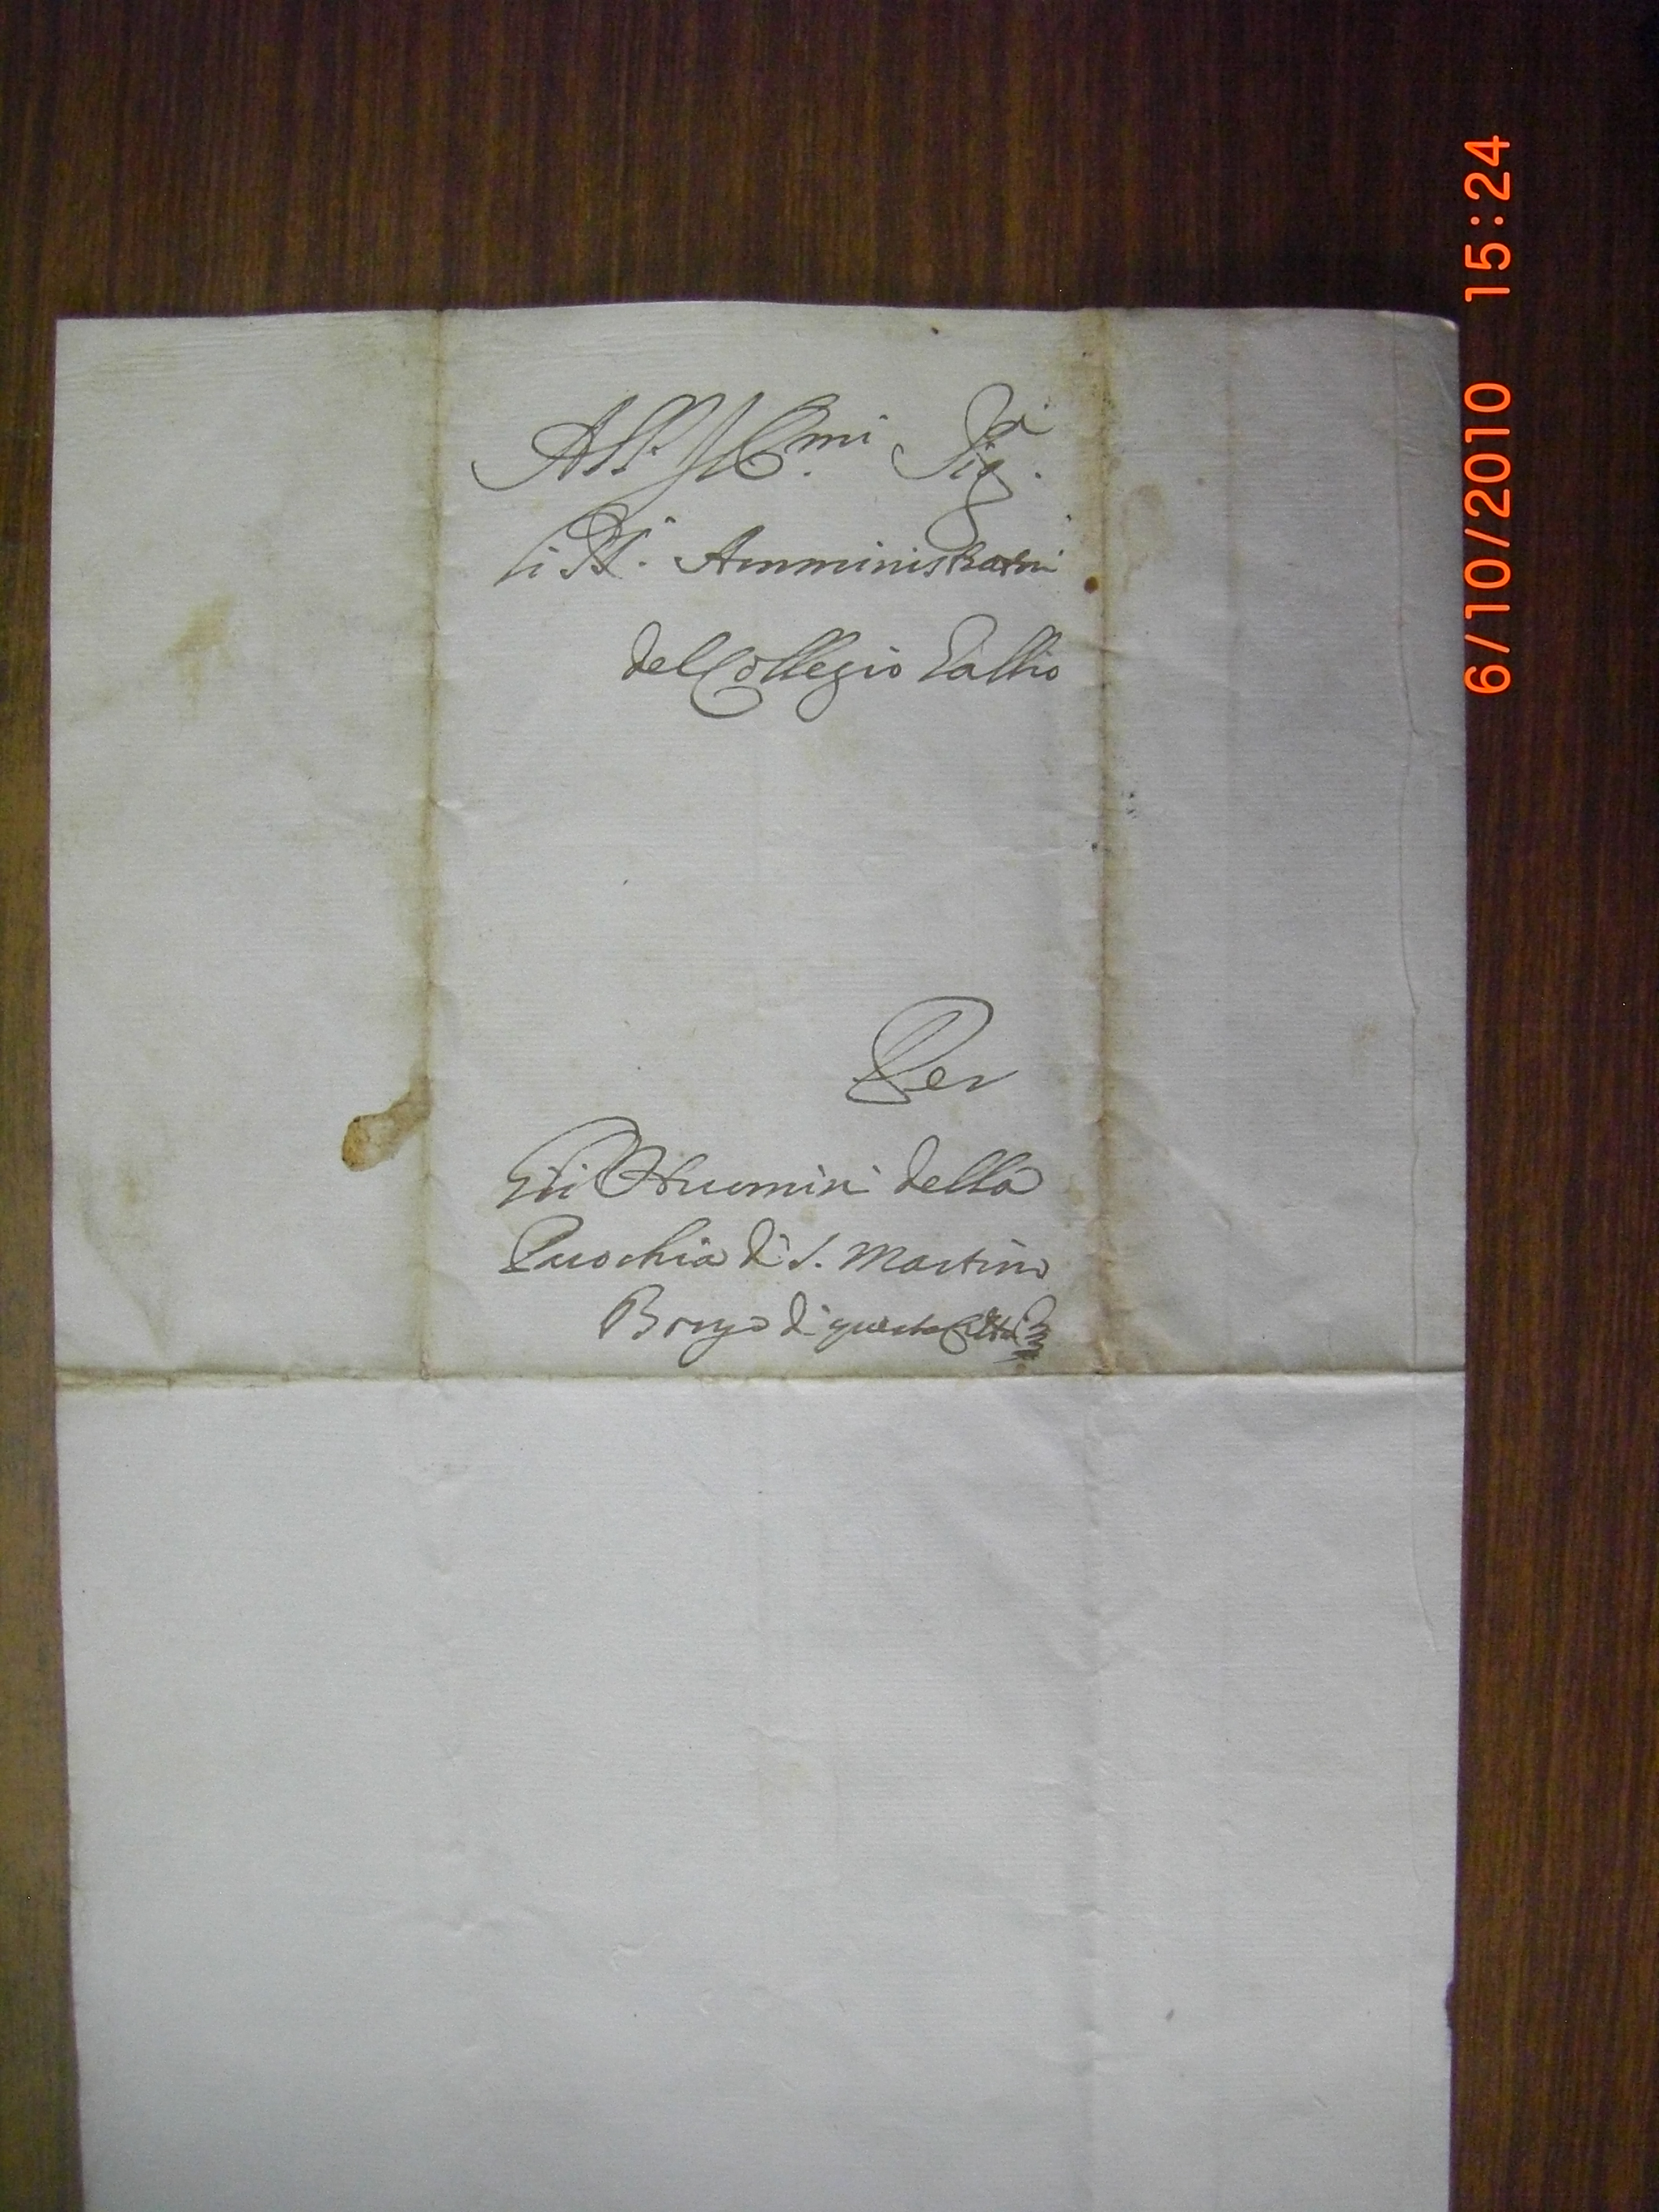 All' Ill.mi Sig.ri
li SS.ri Amministratori
del Collegio Gallio
Per
Gli Huomini della
Parochia di S. Martino
Borgo di questa Città
6/10/2010 15:24